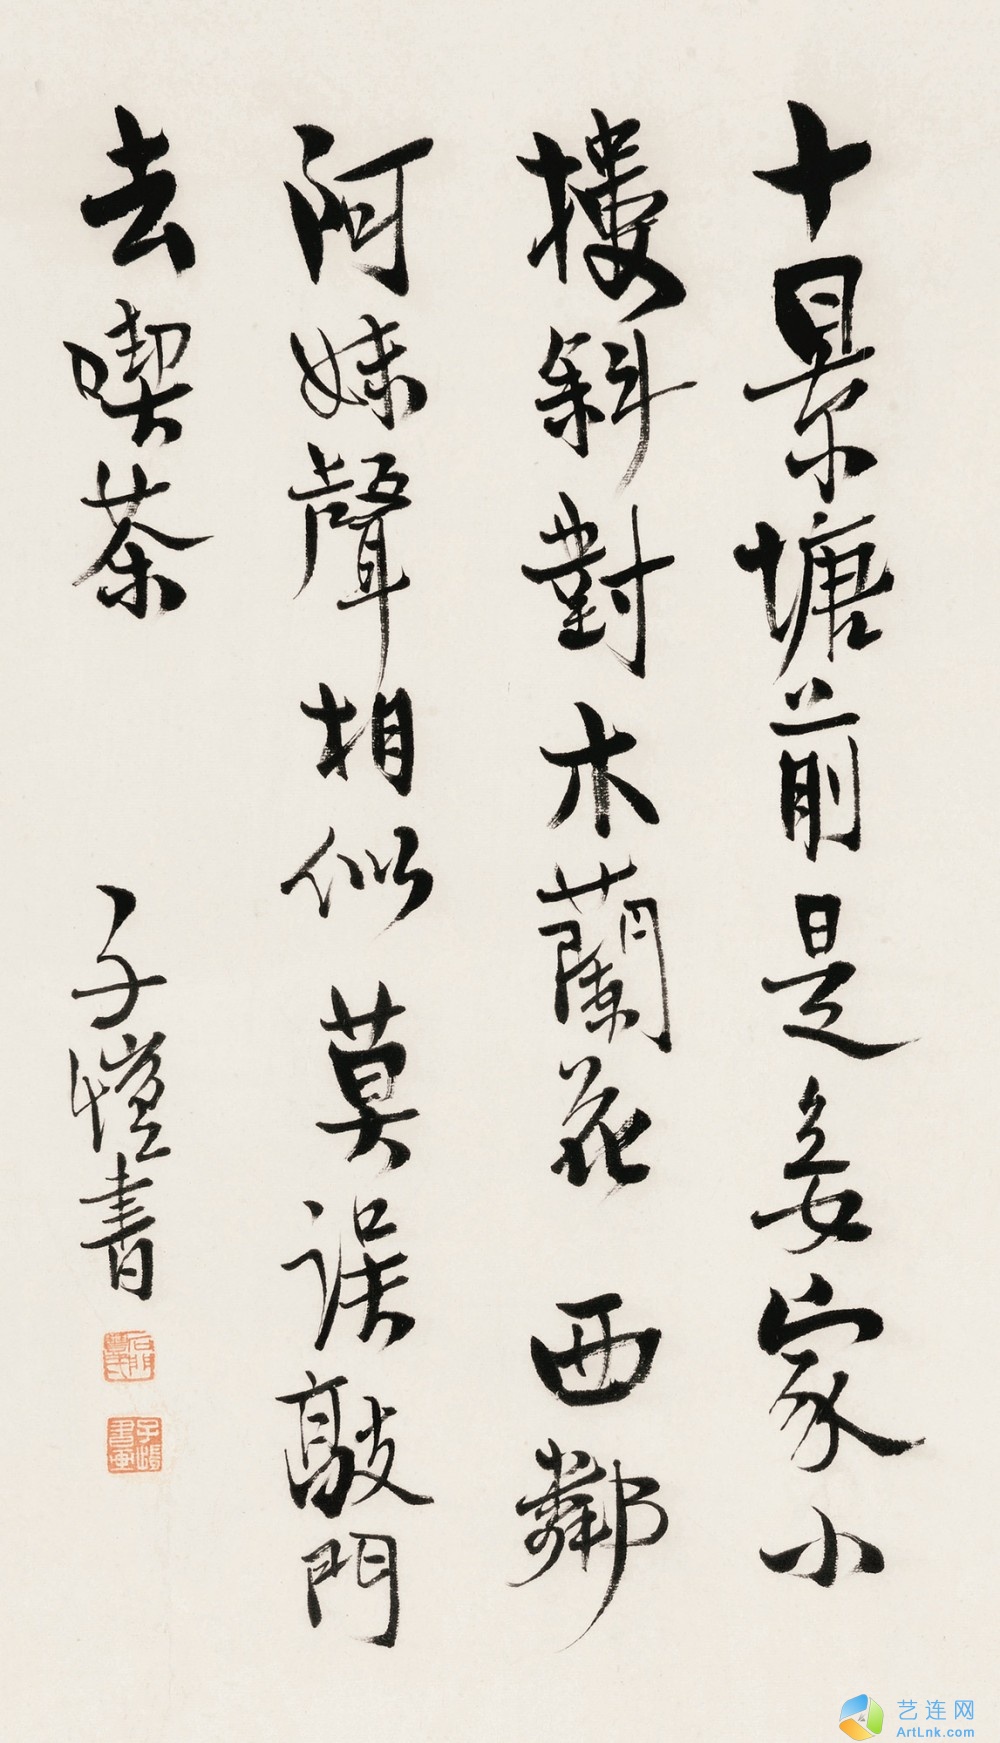 十景塘前是妾家小
樓斜對木蘭花西鄰
阿妹聲相似莫誤敲門
去喫茶
子愷書
子愷書畫
艺连网
ArtLnk.com